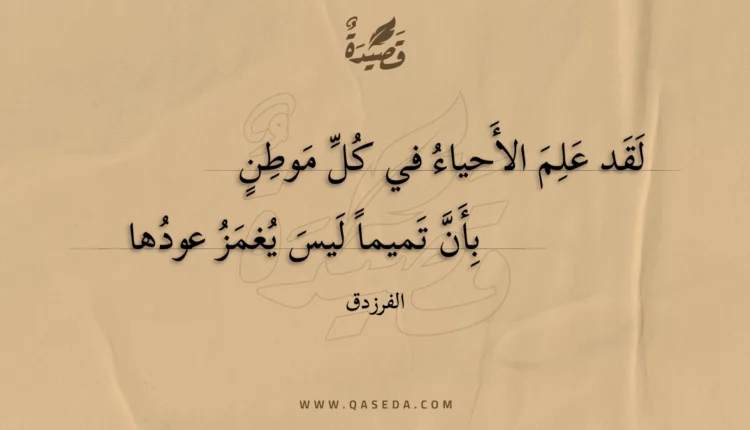 قَصِيْدَةٌ
لَقَد عَلِمَ الأَحياءُ في كُلِّ مَوطِنٍ
بِأَنَّ تَميماً لَيسَ يُغمَزُ عودُها
الفرزدق
WWW.QASEDA.COM